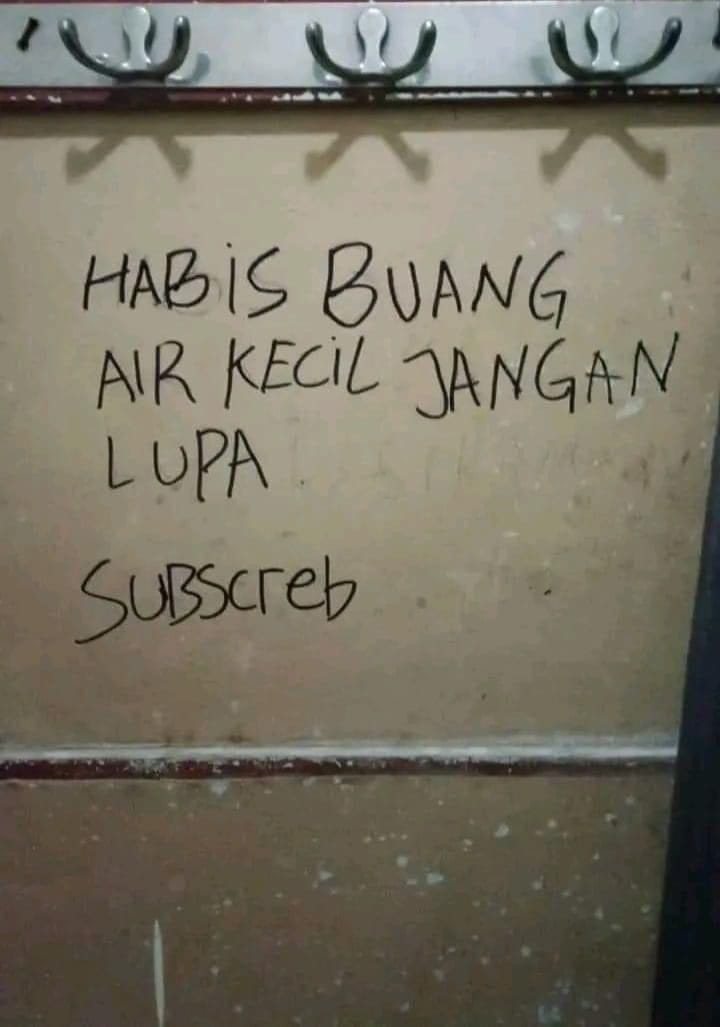 HABIS BUANG
AIR KECIL JANGAN
LUPA
SUBScreb